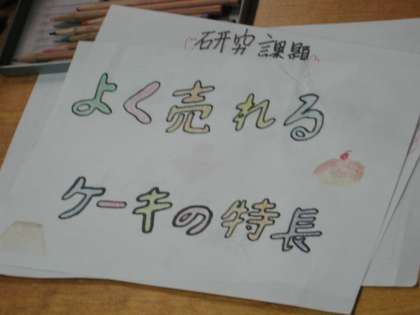 研究課題
よく売れる
ケーキの特長